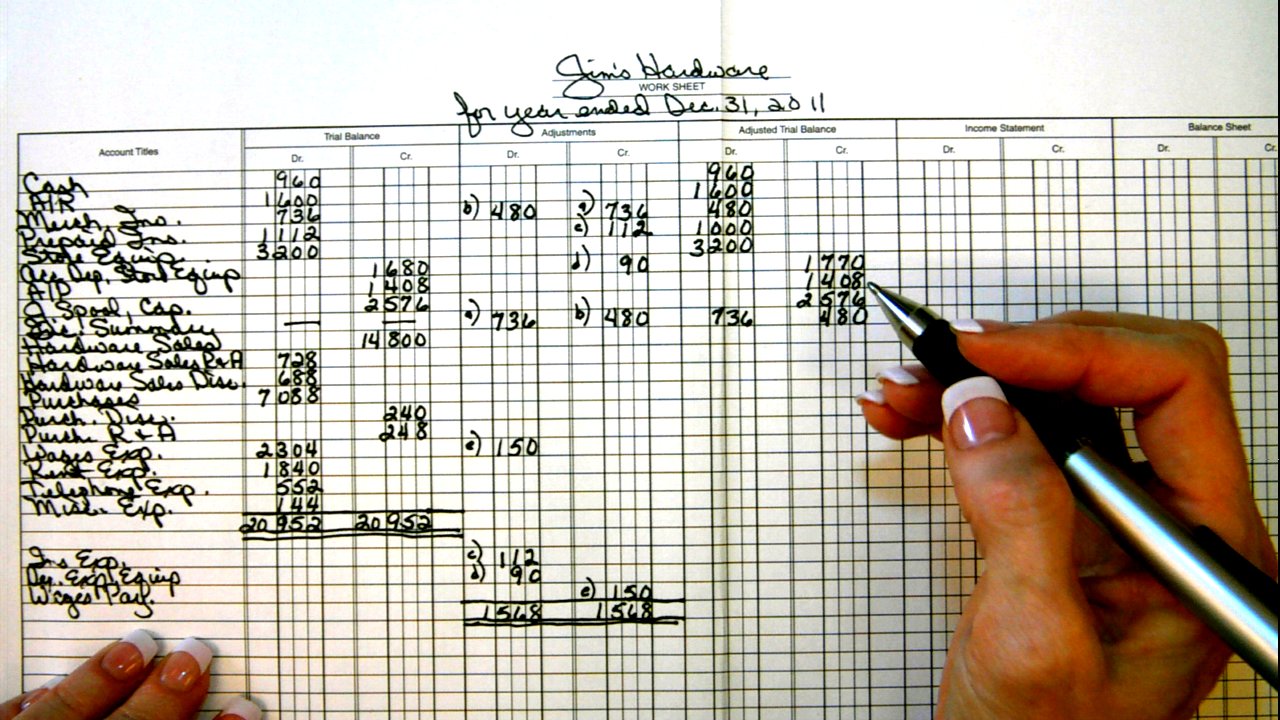 Jim's Hardware
WORK SHEET
for year ended Dec. 31, 2011
Account Titles Trial Balance Adjustments Adjusted Trial Balance Income Statement Balance Sheet
Dr. Cr. Dr. Cr. Dr. Cr. Dr. Cr. Dr. Cr.
Cash 960 960
A/R 1600 1600
Merch. Inv. 736 b) 480 a) 736 480
Prepaid Ins. 1112 c) 112 1000
Store Equip. 3200 3200
Acc. Dep. Store Equip 1680 d) 90 1770
A/P 1408 1408
J. Spool, Cap. 2576 2576
Inc. Summary — — a) 736 b) 480 736 480
Hardware Sales 14800
Hardware Sales R&A 728
Hardware Sales Disc. 688
Purchases 7088
Purch. Disc. 240
Purch. R & A 248
Wages Exp. 2304 e) 150
Rent Exp. 1840
Telephone Exp. 552
Misc. Exp. 144
20952 20952
Ins Exp. c) 112
Dep. Exp. Equip d) 90
Wages Pay. e) 150
1568 1568